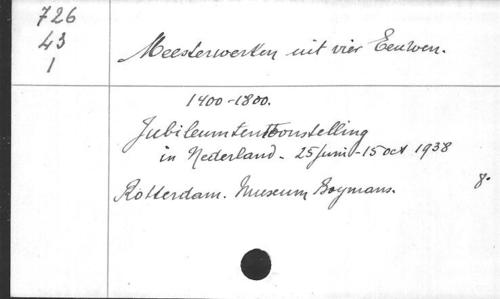 726
43
1
Meesterwerken uit vier Eeuwen.
1400-1800.
Jubileumtentoonstelling
in Nederland. 25 juni-15 oct 1938
Rotterdam. Museum Boymans.
8°